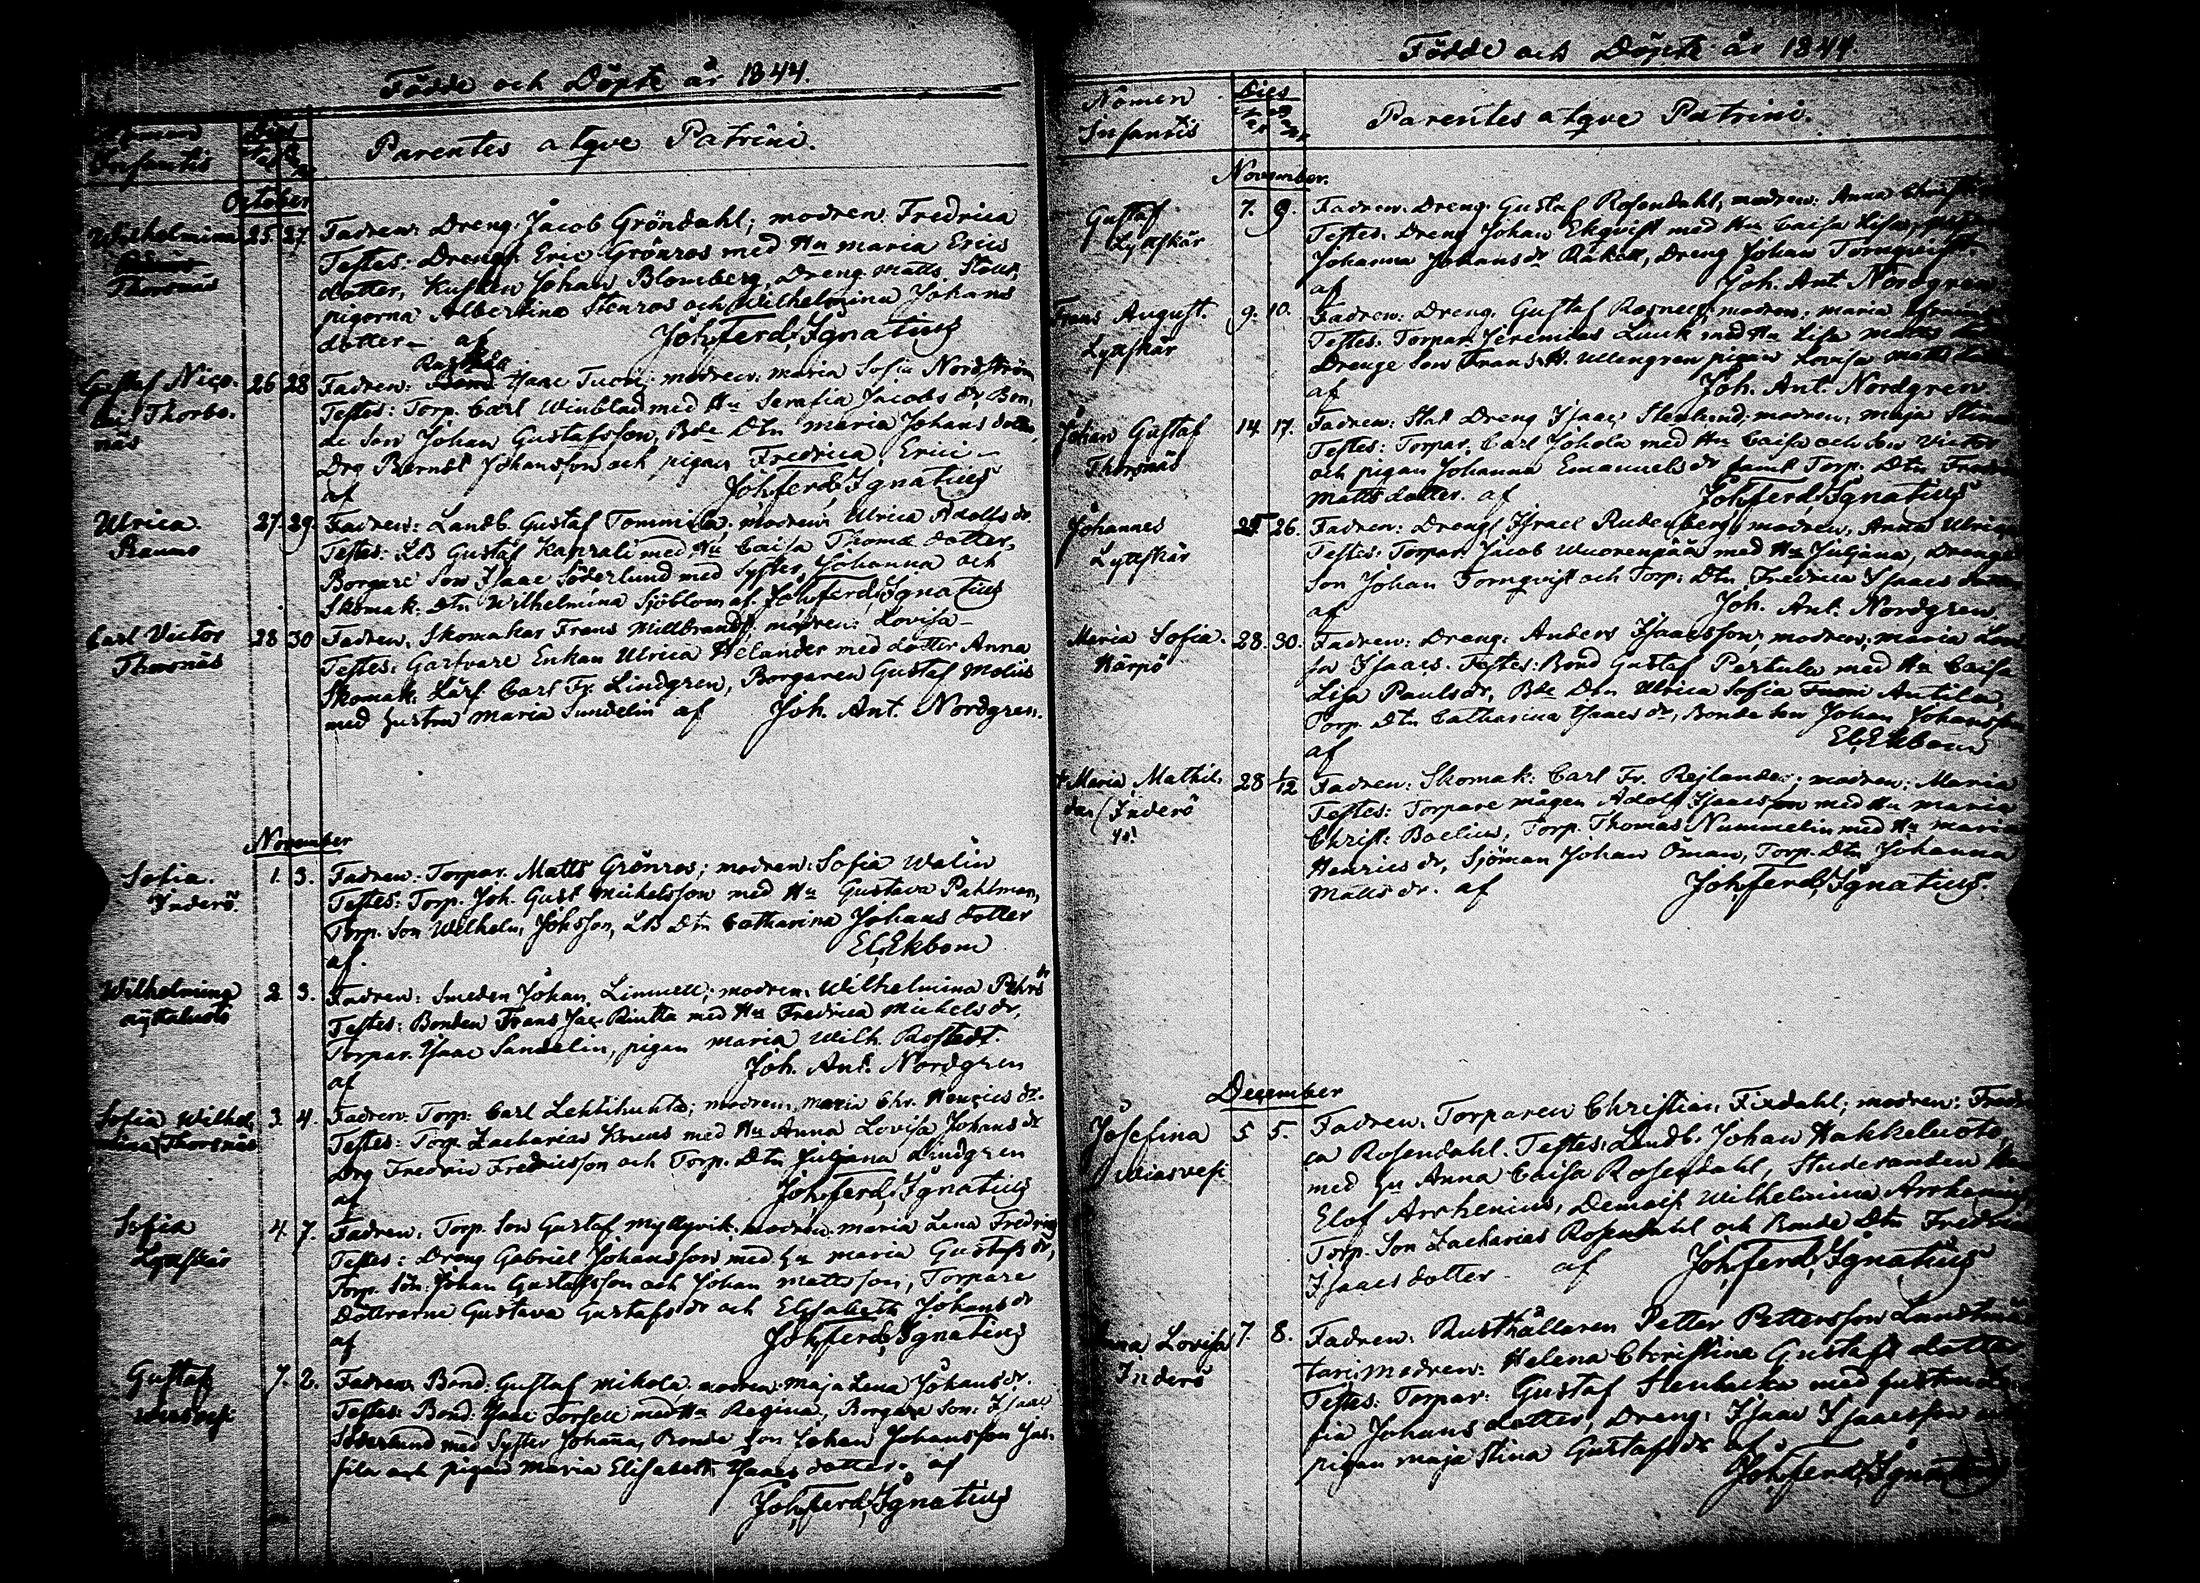 Födde och Döpte år 1844.
Nomen Infantis
Dies
Parentes atqve Patrini.
October
Wilhelmina Thorsnäs 25 27. Fadren: Dreng: Jacob Gröndahl; modren Fredrica
Testes: Dreng: Eric Grönros med Hu Maria Erics
dotter, Johan Blomberg, Dreng Matts
pigorna Albertina Stenros och Wilhelmina Johans
dotter— af Joh. Ferd. Ignatius
Gustaf Nico- lai Thorsnäs 26 28 Fadren: Isaac Tuomi; modren: Maria Sofia Nordström
Testes: Torp. Carl Winblad med Hu Serafia Jacobs dr, Bon-
de Son Johan Gustafsson, Bde Dtn Maria Johans dotter,
Drg Berndt Johansson och pigan Fredrica Erici—
af Joh. Ferd. Ignatius
Ulrica. Raumo 27. 29. Fadren: Landb. Gustaf Tommila; modren: Ulrica Adolfs dr.
Testes: LB Gustaf Kaprali med Hu Caisa Thomæ dotter,
Borgare Son Isaac Söderlund med Syster Johanna och
Skomak. Dtn Wilhelmina Sjöblom af Joh. Ferd. Ignatius
Carl Victor Thorsnäs 28 30 Fadren: Skomakar Frans Millbrandt; modren: Lovisa—
Testes: Garfvare Enkan Ulrica Helander med dotter Anna
Skomak. Lärl. Carl Fr. Lindgren, Borgaren Gustaf Molin
med hustru Maria Sundelin af Joh. Ant. Nordgren.
November
Sofia. Inderö. 1. 3. Fadren: Torpar. Matts Grönros; modren: Sofia Walin
Testes: Torp. Joh. Gust. Michelsson med Hu Gustava Pahlman,
Torp. Son Wilhelm Johsson, LB Dtn Catharina Johans dotter
af. El. Ekbom
Wilhelmina 2. 3. Fadren: Smeden Johan Linnell; modren: Wilhelmina Pehrs dr
Testes: Bonden Frans Jac. Rintta med Hu Fredrica Michels dr,
Torpar. Isaac Sandelin, pigan Maria Wilh. Rostedt.
af Joh. Ant. Nordgren
Sofia Wilhel- mina Thorsnäs 3. 4. Fadren: Torp: Carl Lehtihuhta; modren: Maria Chr. Henrics dr.
Testes: Torp. Zacharias med Hu Anna Lovisa Johans dr
Drg Fredric Fredricsson och Torp. Dtn Juljana Lindgren
af Joh. Ferd. Ignatius
Sofia Lyttskär 4. 7. Fadren: Torp. Son Gustaf Myllyvik; modren: Maria Lena Fredrics
Testes: Dreng Gabriel Johansson med Hu Maria Gustafs dr,
Torp. Sön: Johan Gustafsson och Johan Mattsson, Torpare
Döttrarne Gustava Gustafs dr och Elisabeth Johans dr
af Joh. Ferd. Ignatius
Gustaf 7. 2. Fadren: Bond: Gustaf Mikola modren: Maja Lena Johans dr.
Testes: Bond: Isaac Torsell med Hu Regina, Borgare Son: Isaac
Söderlund med Syster Johanna, Bonde Son Johan Johansson Jus-
sila och pigan Maria Elisabeth Isaacs dotter. af
Joh. Ferd. Ignatius
Födde och Döpte år 1844
Nomen Infantis
Dies
Parentes atqve Patrini.
November.
Gustaf Lyttskär 7. 9. Fadren: Dreng. Gustaf Rosendahl; modren: Anna
Testes: Dreng Johan Ekqvist med Hu Caisa Lisa,
Johanna Johans dr Räkett, Dreng Johan Tornqvist.
af Joh. Ant. Nordgren
Frans August. Lyttskär 9. 10. Fadren: Dreng. Gustaf Rosnell; modren: Maria
Testes: Torpar. Jeremias Linck med Hu Lisa Matts
Drenge Son Frans H. Ullengren pigan Lovisa Matts
af Joh. Ant. Nordgren
Johan Gustaf Thorsnäs 14. 17. Fadren: Stat Dreng Isaac Stenlund; modren: Maja Stina
Testes: Torpar. Carl Jokola med Hu Caisa och Son Victor
och pigan Johanna Emanuels dr samt Torp. Dtn
Matts dotter. af Joh. Ferd. Ignatius
Johannes Lyttskär 25 26. Fadren: Dreng: Israel Rudenberg; modren: Anna Ulrica
Testes: Torpar. Jacob Wuorenpää med Hu Juljana, Drenge
Son Johan Tornqvist och Torp: Dtn Fredrica Isaacs
af Joh. Ant. Nordgren.
Maria Sofia. Härpö 28. 30. Fadren: Dreng: Anders Isaacsson; modren: Maria
Isaacs. Testes: Bond Gustaf Pertula med Hu Caisa
Lisa Pauls dr, Bde Dtn Ulrica Sofia Tumi Antila,
Torp. Dtn Catharina Isaacs dr, Bonde Son Johan Johansson
af El. Ekbom
+ Maria Mathil- da Inderö 28 1/12 Fadren: Skomak: Carl Fr. Rejlander; modren: Maria
Testes: Torpare mågen Adolf Isaacsson med Hu Maria
Christ: Boelius, Torp. Thomas Nummelin med Hu Maria
Henrics dr, Sjöman Johan Öman, Torp. Dtn Johanna
Matts dr. af Joh. Ferd. Ignatius.
December
Josefina 5 5. Fadren: Torparen Christian Fixdahl; modren:
ca Rosendahl. Testes: Landb: Johan Hakkeluoto,
med Hu Anna Caisa Rosendahl, Studeranden
Elof Arrhenius, Demois. Wilhelmina Arrhenius
Torp. Son Zacharias Rosendahl och Bonde Dtn
Isaacs dotter. af Joh. Ferd. Ignatius
Anna Lovisa Inderö 7. 8. Fadren: Rusthållaren Petter Pettersson
modren: Helena Christina Gustafs dotter
Testes: Torpar: Gustaf Stenbacka med hustru
fia Johans dotter, Dreng: Isaac Isaacsson
pigan Maja Stina Gustafs dr af
Joh. Ferd. Ignatius